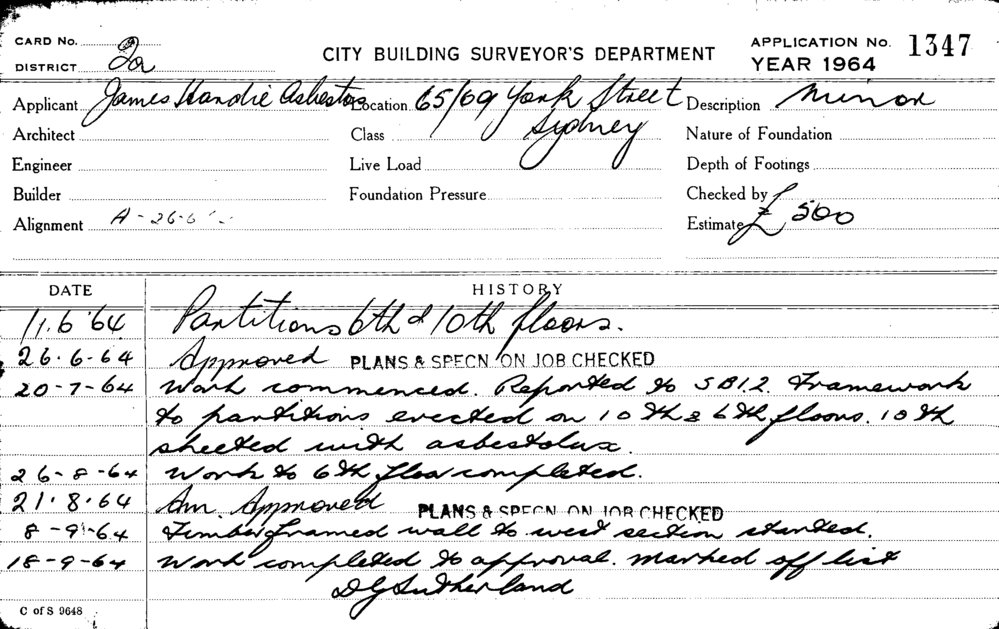 CARD No. 2
DISTRICT 2a
CITY BUILDING SURVEYOR'S DEPARTMENT
APPLICATION No. 1347
YEAR 1964
Applicant James Hardie Asbestos Location 65/69 York Street Description Minor
Architect Class Sydney Nature of Foundation
Engineer Live Load Depth of Footings
Builder Foundation Pressure Checked by
Alignment A - 26-6 Estimate £ 500
DATE HISTORY
11.6.64 Partitions 6th & 10th floors.
26.6-64 Approved PLANS & SPECN ON JOB CHECKED
20-7-64 Work commenced. Reported to SB12. Framework
to partitions erected on 10th & 6th floors. 10th
sheeted with asbestolux.
26-8-64 Work to 6th floor completed.
21.8.64 Am. Approved PLANS & SPECN ON JOB CHECKED
8-9-64 Timber framed wall to west section started.
18-9-64 Work completed to approval. Marked off list
D G Sutherland
C of S 9648